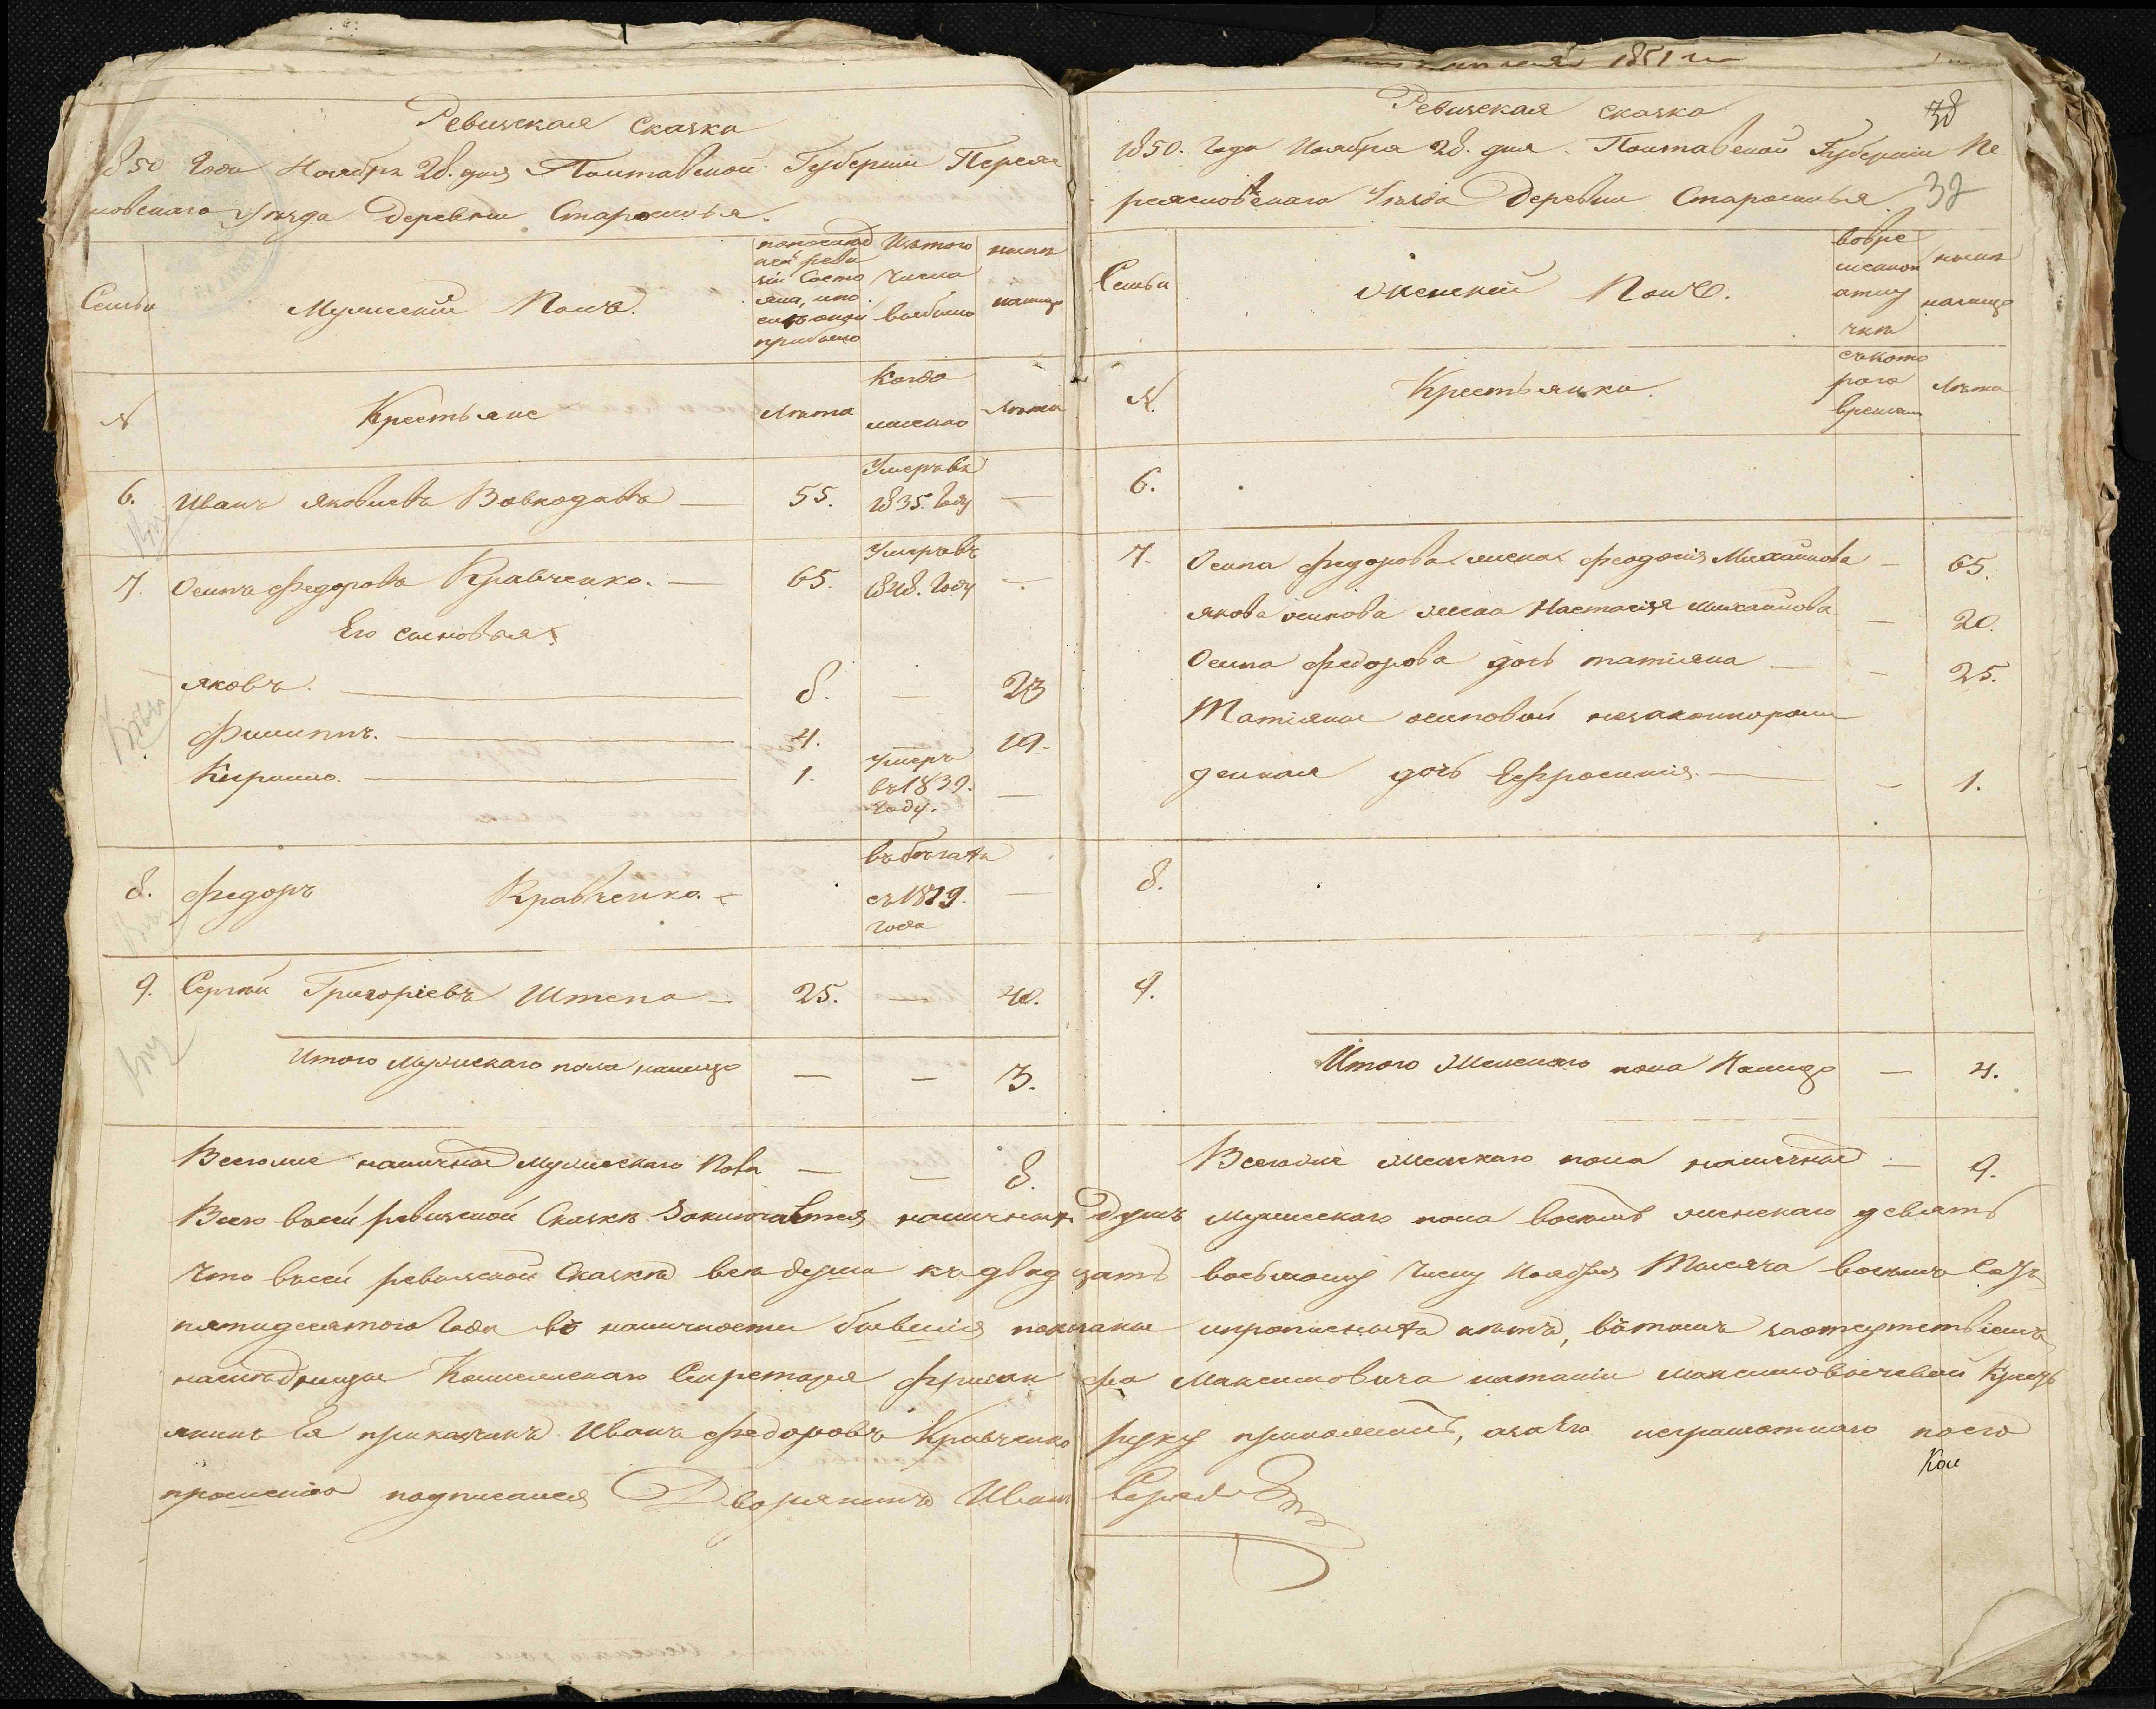 Ревизская Сказка
1850 Года Ноября 28. дня Полтавской Губернии Переяс
ловскаго Уезда Деревни Старосилья.
Семьи
Мужескій Полъ.
по послед
ней реви
зіи Состо
яло, и по
прибыло
Изътого
числа
выбыло
ныне
налицо
№
Крестьяне
Лѣта
Когда
именно
Лѣта
6. Иванъ Яковлевъ Вовкодавъ — 55. Умеръ въ 1835. Году —
7. Осипъ Федоровъ Кравченко. — 65. Умеръ въ 1848. Году —
Его сыновья
Яковъ. — 8. — 23
Филиппъ. — 4. 19.
Кирило. — 1. Умеръ въ 1839. Году. —
8. Федоръ Кравченко. въ бѣгахъ съ 1819. Года —
9. Сергѣй Григоріевъ Штепа — 25. — 40.
Итого Мужескаго пола налицо — — 3.
Всеголие наличное Мужескаго Пола — — 8.
1851
Ревизская сказка
38
1850. Года Ноября 28. дня Полтавской Губерніи Пе
реясловскаго Уѣзда Деревни Старосилья.
32
Семьи
Женскій Полъ.
вовре
менной
отлу
чкѣ
ныне
налицо
№.
Крестьянки.
съкото
раго
времени
Лѣта
6.
7. Осипа Федорова жена Феодосія Михайлова — 65.
Якова Осипова жена Настасія Михайлова — 20.
Осипа Федорова дочь Татіяна — 25.
Татіяны Осиповой незаконнорож
денная дочь Ефросинія. — 1.
8.
9.
Итого Женскаго пола Налицо — 4.
Всеголие женскаго пола наличное — 9.
Всего въсей ревизской Сказкѣ Заключается наличныхъ Душъ мужескаго пола восемь женскаго девять
Что въсей ревизской Сказкѣ все Души къ двадцать восьмому Числу Ноября Тысяча восемь Сотъ
пятидесятого Года въ наличности бывшія показаны и прописныхъ нѣтъ, въ томъ за отсутствіемъ
наследницы Колежскаго Секретаря Максимовича Наталіи Максимовичевой Кресть
янинъ Ея приказчикъ Иванъ Федоровъ Кравченко руку приложилъ, а за Его неграмотнаго по его
прошенію подписался Дворянинъ Иванъ